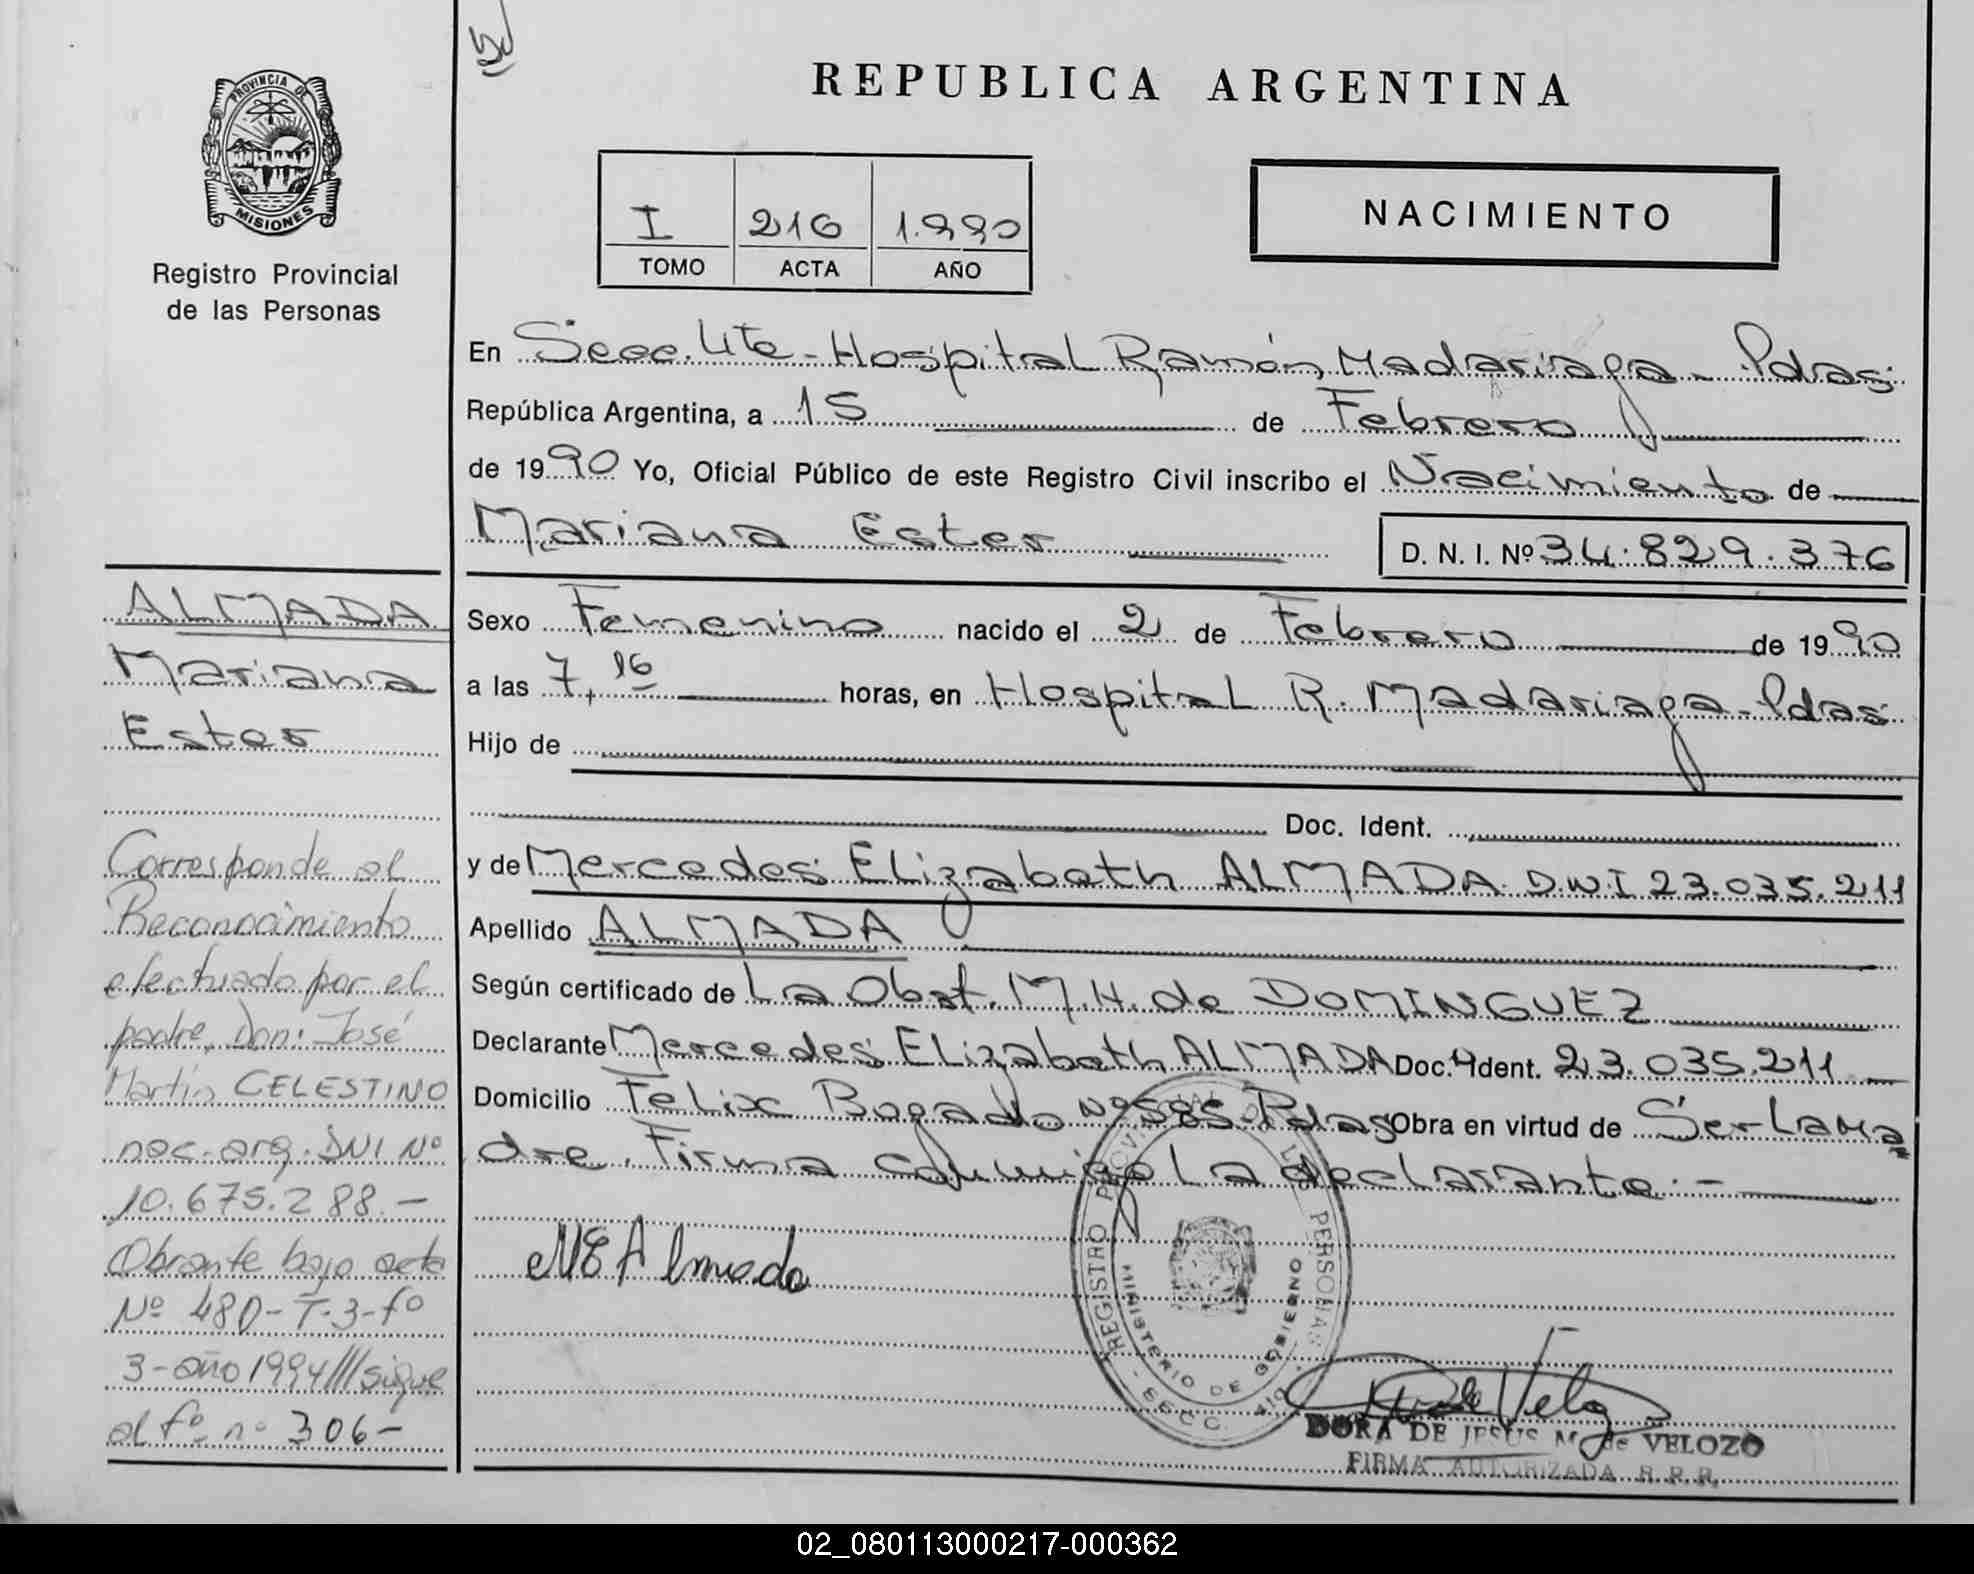 PROVINCIA DE
MISIONES
Registro Provincial
de las Personas
REPUBLICA ARGENTINA
I 216 1.990
TOMO ACTA AÑO
NACIMIENTO
En Secc. 4ta - Hospital Ramón Madariaga - Pdas.
República Argentina, a 15 de Febrero
de 1990 Yo, Oficial Público de este Registro Civil inscribo el Nacimiento de
Mariana Ester
D. N. I. Nº 34.829.376
Sexo Femenino nacido el 2 de Febrero de 1990
a las 7,16 horas, en Hospital R. Madariaga - Pdas
Hijo de
Doc. Ident.
y de Mercedes Elizabeth ALMADA D.N.I 23.035.211
Apellido ALMADA
Según certificado de La Obst. M.H. de DOMINGUEZ
Declarante Mercedes Elizabeth ALMADA Doc. Ident. 23.035.211 -
Domicilio Felix Bogado Nº 585 Pdas Obra en virtud de Ser La ma
dre. Firma conmigo La declarante. -
ME Almada
REGISTRO PROVINCIAL DE LAS PERSONAS
MINISTERIO DE GOBIERNO
SECC. 4ta
DORA DE JESUS M. de VELOZO
FIRMA AUTORIZADA R. P. P.
ALMADA
Mariana
Ester
Corresponde al
Reconocimiento
efectuado por el
padre, Don: José
Martín CELESTINO
nac. arg. DNI Nº
10.675.288.-
Obrante bajo acta
Nº 480-T.3-fº
3-año 1994///sigue
al fº nº 306-
02_080113000217-000362